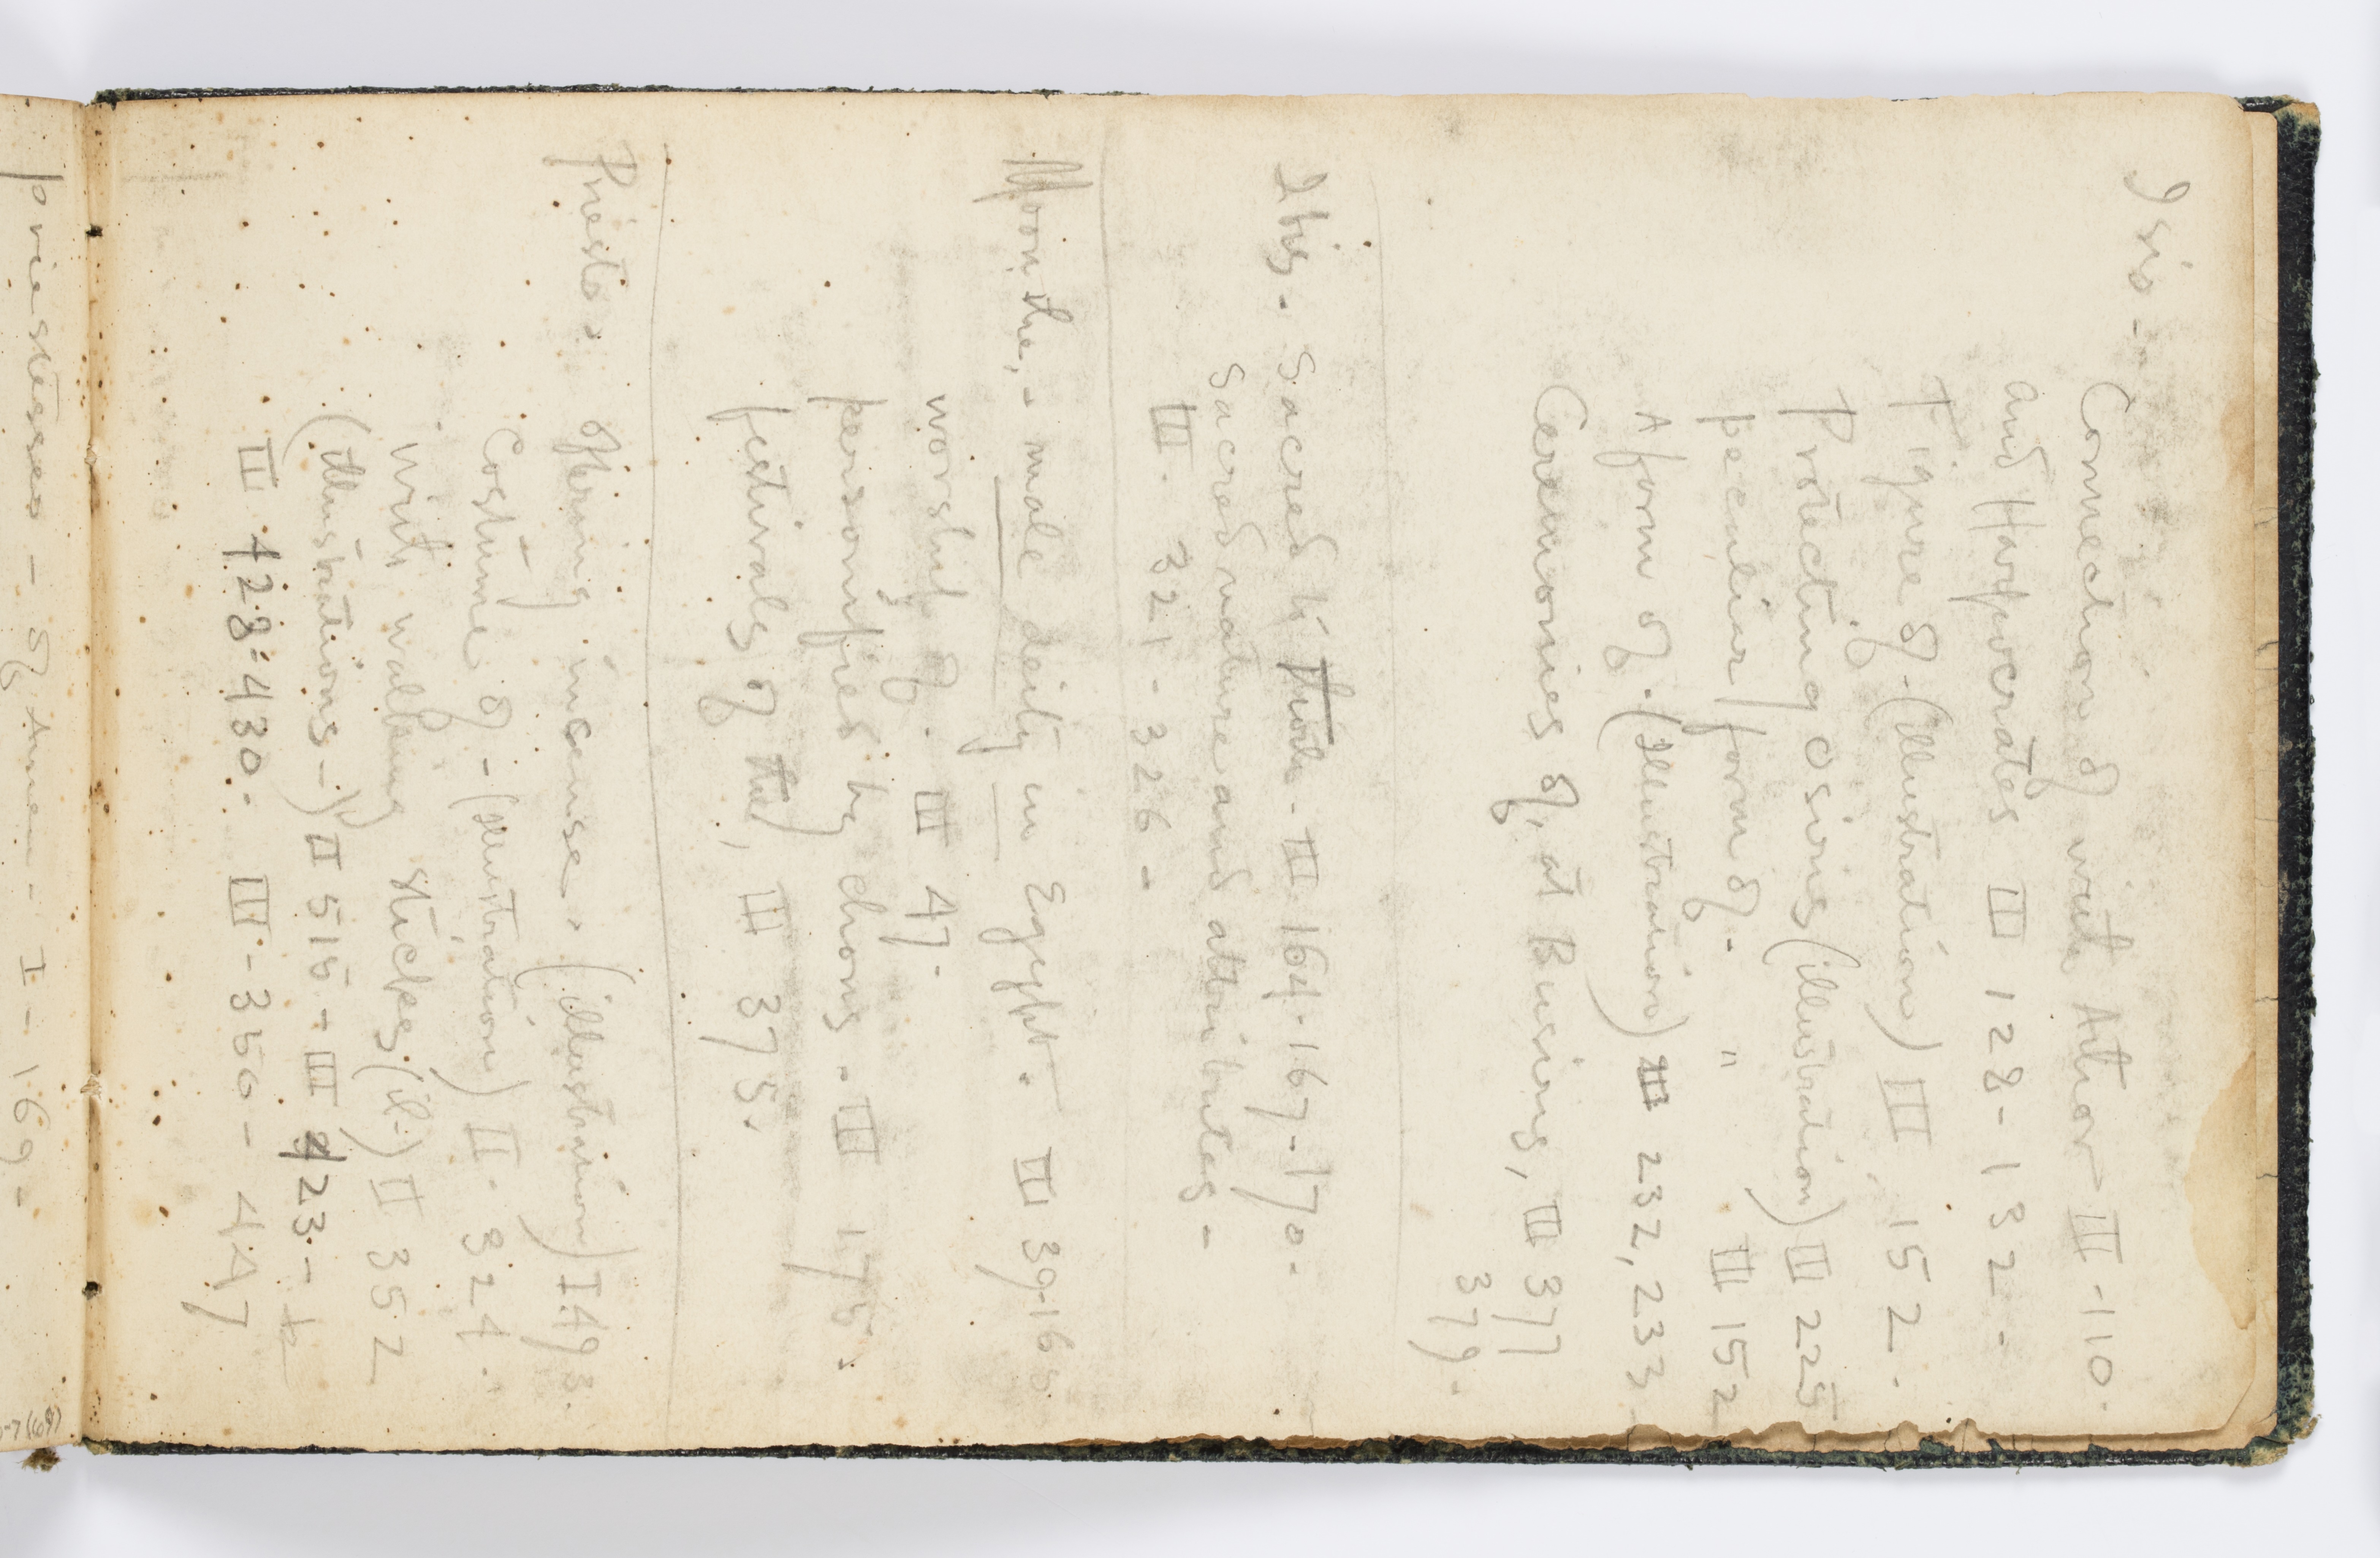 Isis -
Connection of with Athor III - 110.
and Harpocrates III 128 - 132 -
Figure of - (illustration) III 152 -
Protecting Osiris (illustration) III 225
peculiar form of - " III 152
A form of - (Illustration) III 232, 233
Ceremonies of, at Busiris, III 377
379.
Ibis - Sacred to Thoth - III 164 - 167 - 170 -
Sacred nature and attributes -
III - 321 - 326 -
Moon the, - male deity in Egypt - III 39-165
worship of - III 47 -
personified by Chons - III 175 -
festivals of the, III 375.
Priests - offering incense - (illustration) I 493.
Costume of - (illustration) II - 324 -
with walking sticks (il-) II 352
(illustrations -) II 515 - III 423 - to
III 428-430 - III - 350 - 447
priestesses - of Amen - I - 169 -